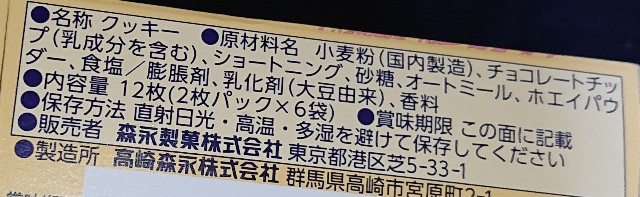 ●名称 クッキー ●原材料名 小麦粉(国内製造)、チョコレートチッ
プ(乳成分を含む)、ショートニング、砂糖、オートミール、ホエイパウ
ダー、食塩／膨脹剤、乳化剤(大豆由来)、香料
●内容量 12枚(2枚パック×6袋) ●賞味期限 この面に記載
●保存方法 直射日光・高温・多湿を避けて保存してください
●販売者 森永製菓株式会社 東京都港区芝5-33-1
●製造所 高崎森永株式会社 群馬県高崎市宮原町2-1